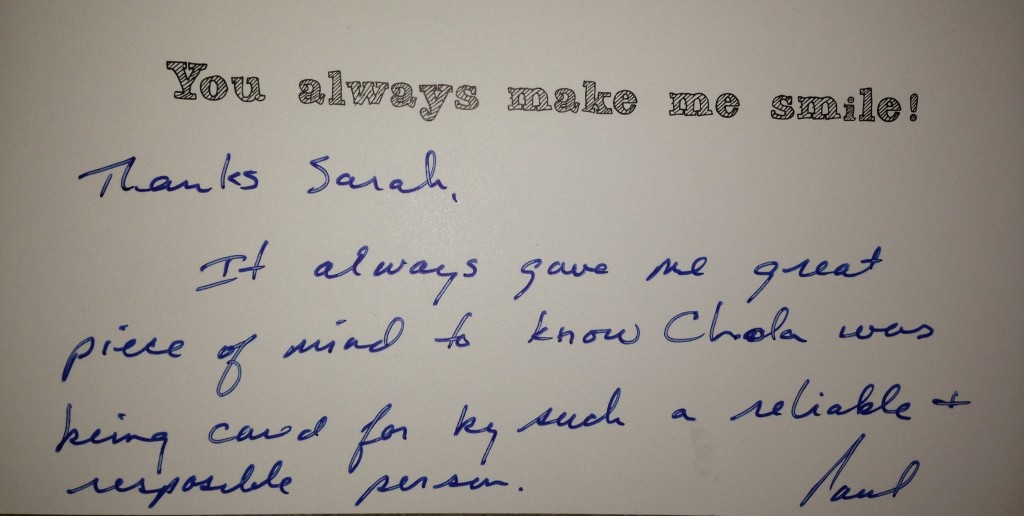 You always make me smile!
Thanks Sarah,
It always gave me great
piece of mind to know Chola was
being card for by such a reliable +
resposible person. Paul